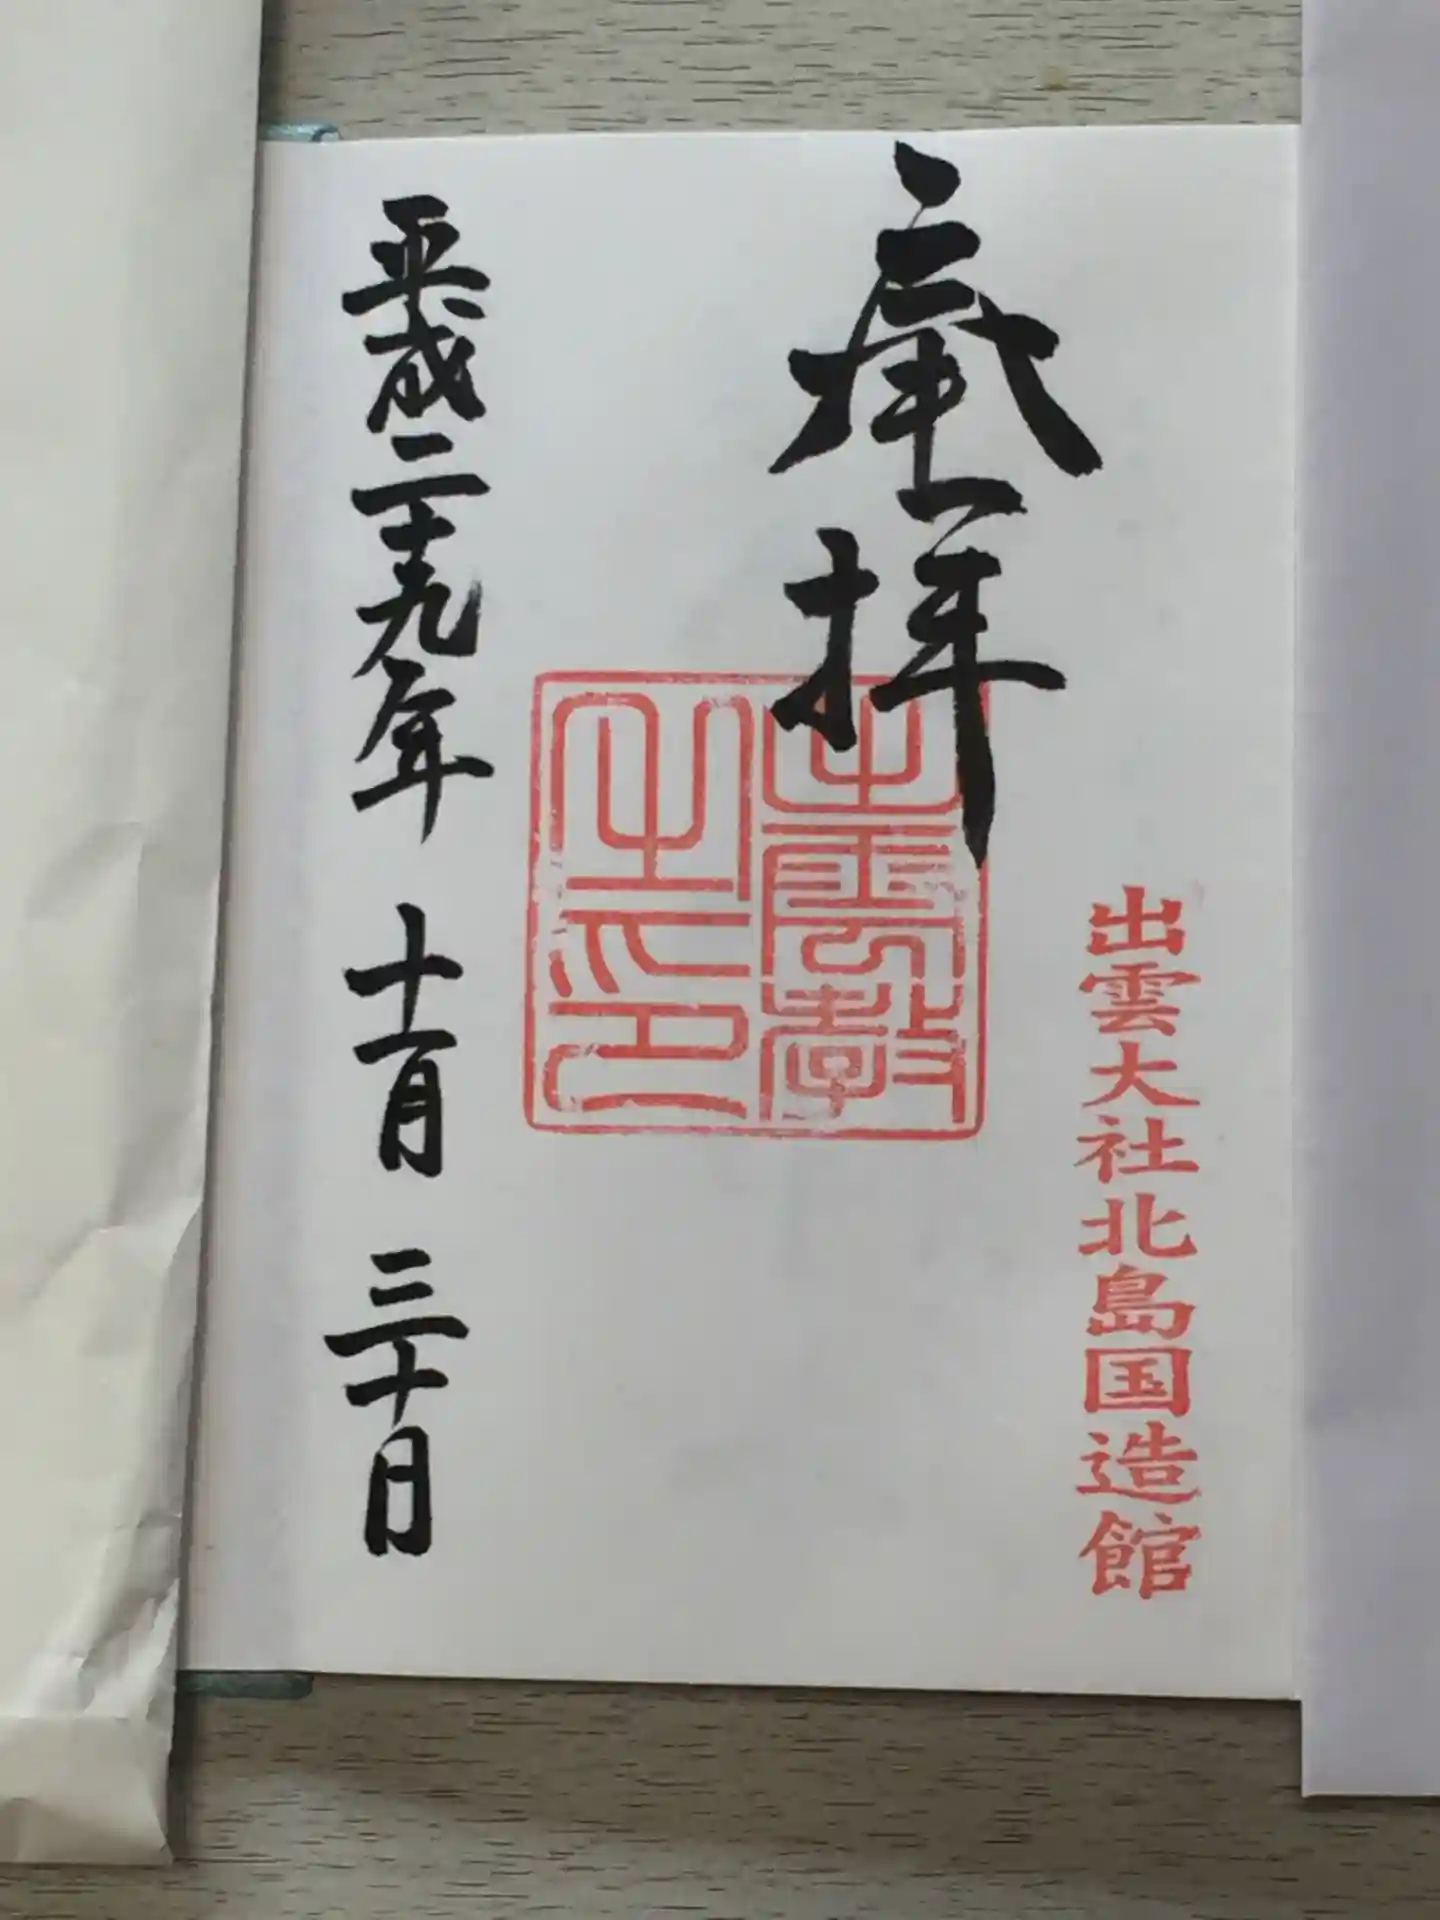 出雲大社北島国造館
奉拝
出雲教
之印
平成二十九年 十一月 三十日